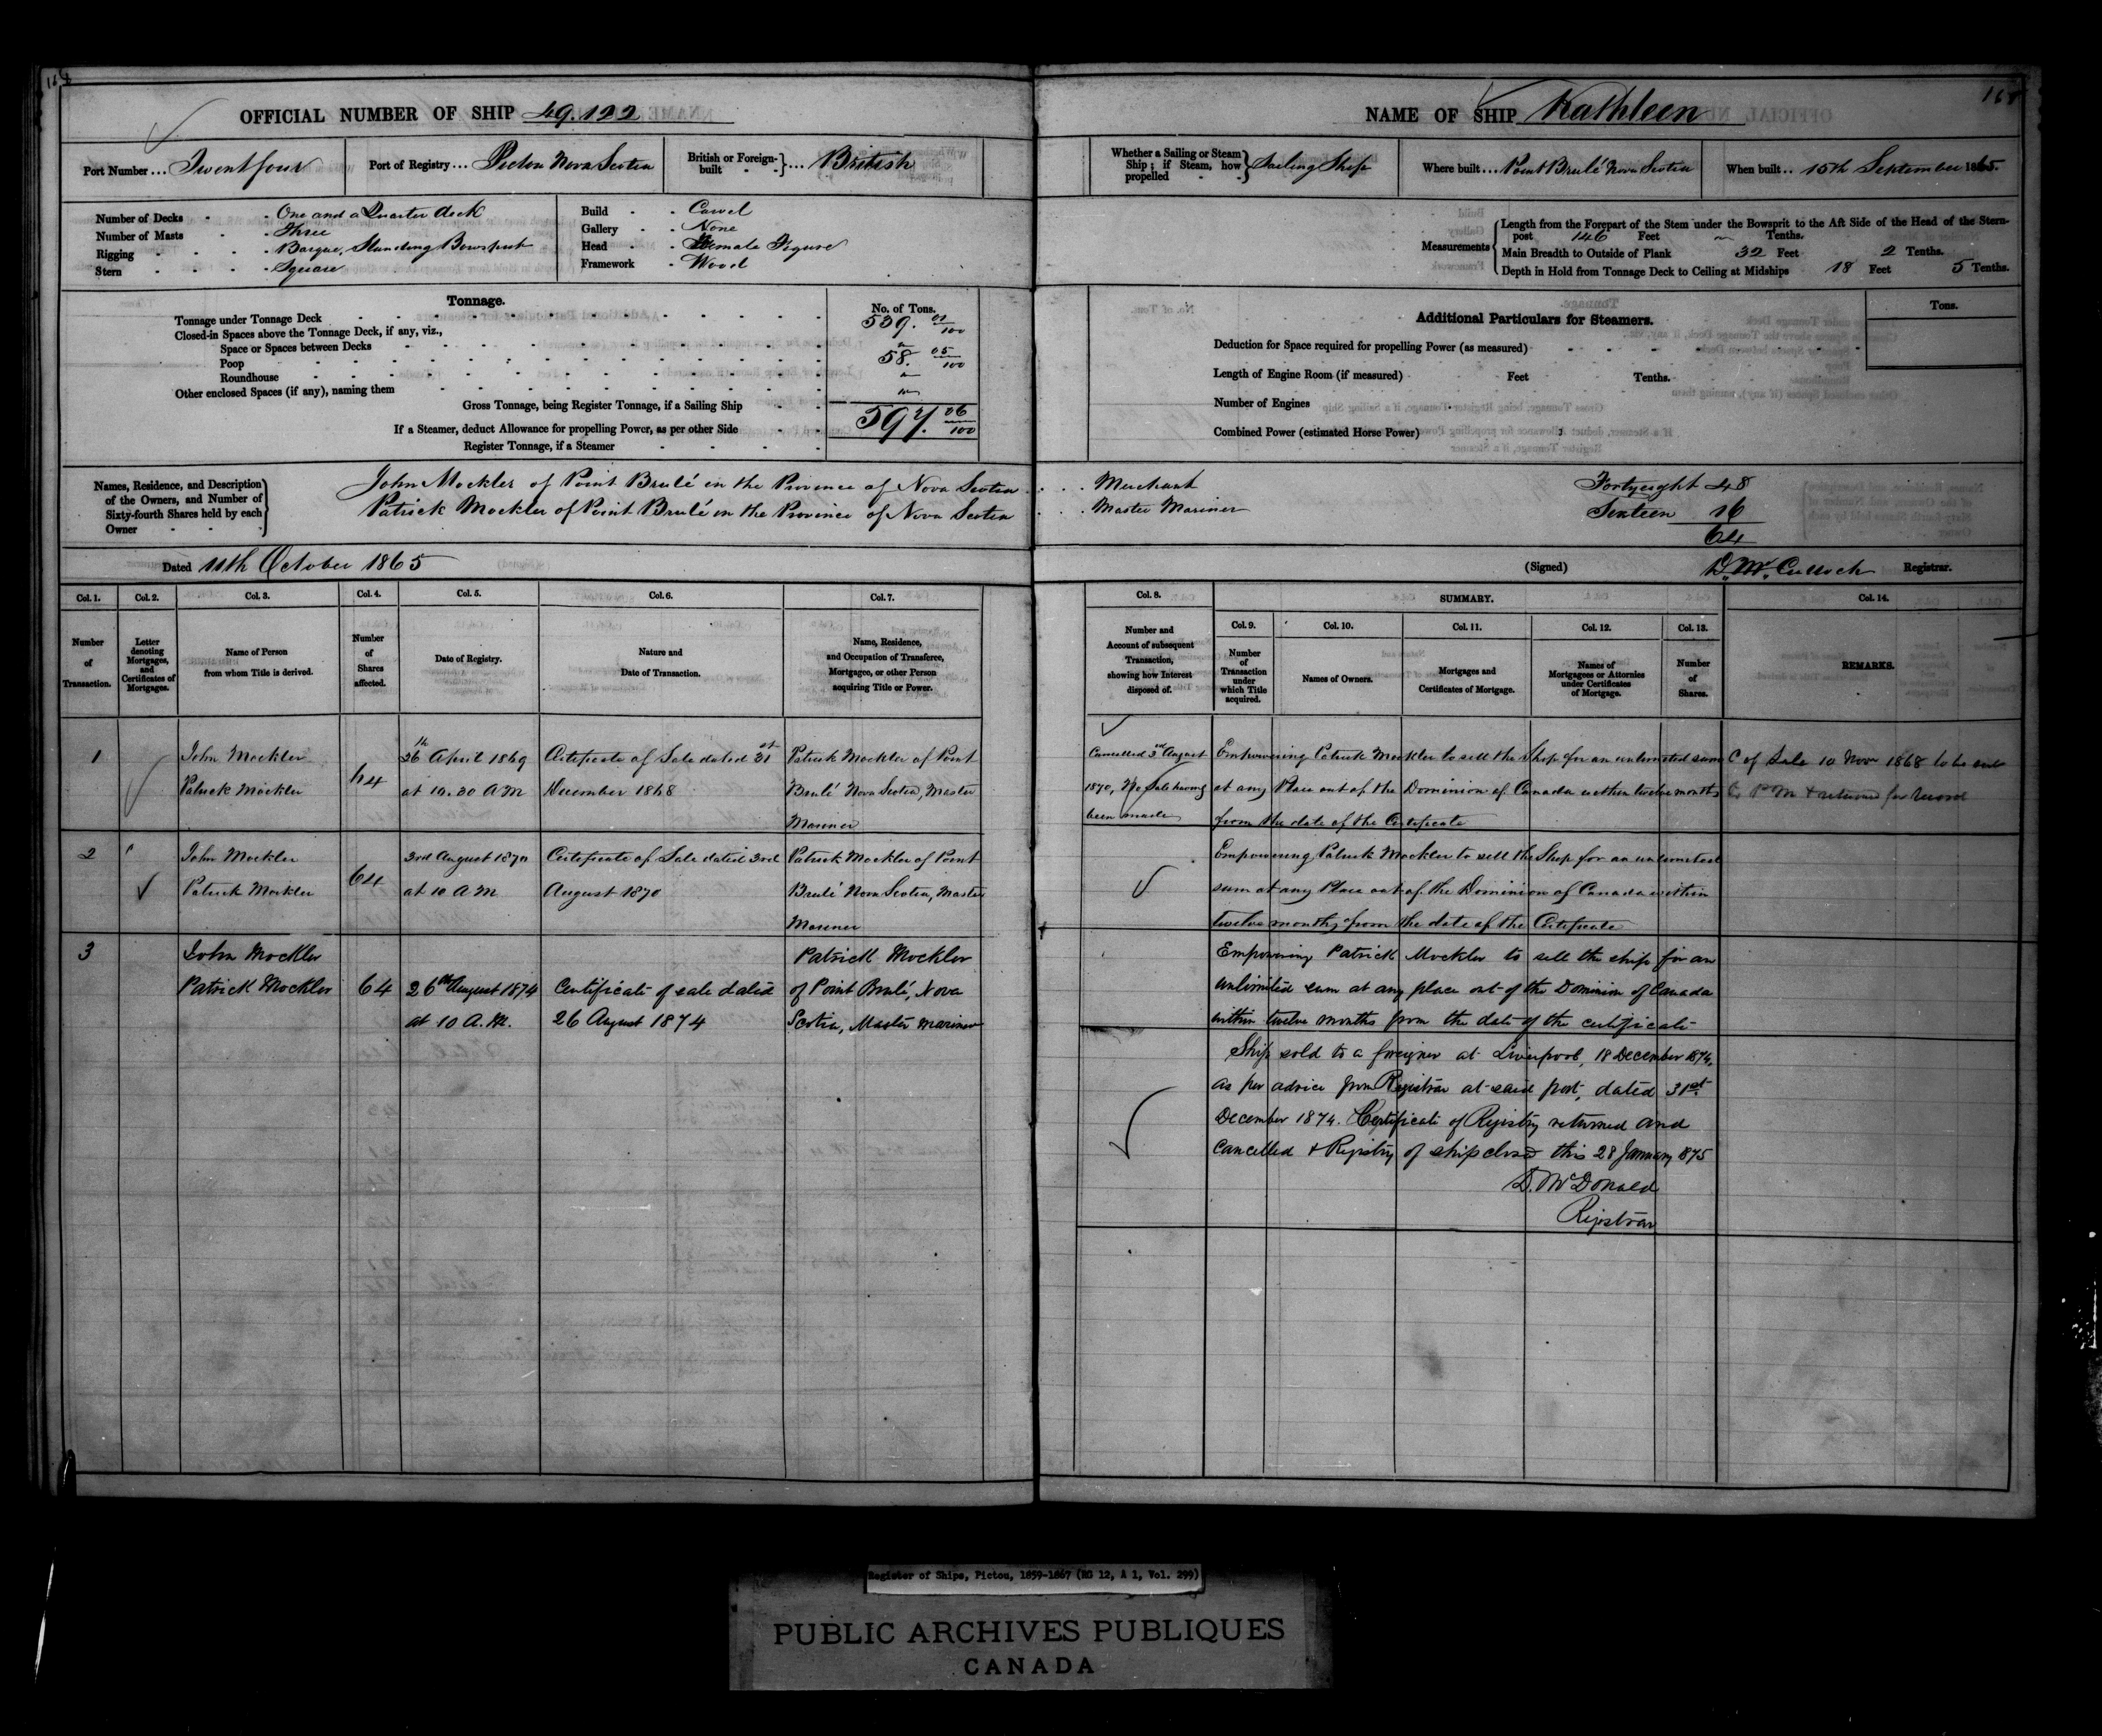 168
OFFICIAL NUMBER OF SHIP 49.122
Port Number ... Twentfour
Port of Registry ... Pictou Nova Scotia
British or Foreign-built - - } ... British
Number of Decks - - One and a Quarter deck
Number of Masts - - Three
Rigging - - - - Barque, Standing Bowsprit
Stern - - - - Square
Build - - Carvel
Gallery - - None
Head - - Female Figure
Framework - Wood
Tonnage.
No. of Tons.
Tonnage under Tonnage Deck 539. 01/100
Closed-in Spaces above the Tonnage Deck, if any, viz.,
Space or Spaces between Decks "
Poop 58. 05/100
Roundhouse "
Other enclosed Spaces (if any), naming them "
Gross Tonnage, being Register Tonnage, if a Sailing Ship 597. 06/100
If a Steamer, deduct Allowance for propelling Power, as per other Side
Register Tonnage, if a Steamer
Names, Residence, and Description of the Owners, and Number of Sixty-fourth Shares held by each Owner
John Mockler of Point Brulé in the Province of Nova Scotia
Patrick Mockler of Point Brulé in the Province of Nova Scotia
Dated 11th October 1865
Col. 1. Col. 2. Col. 3. Col. 4. Col. 5. Col. 6. Col. 7.
Number of Transaction.
Letter denoting Mortgages, and Certificates of Mortgages.
Name of Person from whom Title is derived.
Number of Shares affected.
Date of Registry.
Nature and Date of Transaction.
Name, Residence, and Occupation of Transferee, Mortgagee, or other Person acquiring Title or Power.
1 John Mockler 26th April 1869 Certificate of Sale dated 31st Patrick Mockler of Point
Patrick Mockler 64 at 10.30 AM December 1868 Brulé Nova Scotia, Master
Mariner
2 John Mockler 3rd August 1870 Certificate of Sale dated 3rd Patrick Mockler of Point
Patrick Mockler 64 at 10 AM August 1870 Brulé Nova Scotia, Master
Mariner
3 John Mockler Patrick Mockler
Patrick Mockler 64 26th August 1874 Certificate of sale dated of Point Brulé, Nova
at 10 A.M. 26 August 1874 Scotia, Master mariner
NAME OF SHIP Kathleen
168
Whether a Sailing or Steam Ship; if Steam, how propelled - - } Sailing Ship
Where built ... Point Brulé Nova Scotia
When built .. 15th September 1865.
Measurements
Length from the Forepart of the Stem under the Bowsprit to the Aft Side of the Head of the Stern-
post 146 Feet " Tenths.
Main Breadth to Outside of Plank 32 Feet 2 Tenths.
Depth in Hold from Tonnage Deck to Ceiling at Midships 18 Feet 5 Tenths.
Additional Particulars for Steamers.
Tons.
Deduction for Space required for propelling Power (as measured)
Length of Engine Room (if measured) Feet Tenths.
Number of Engines
Combined Power (estimated Horse Power)
Merchant Fortyeight 48
Master Mariner Sixteen 16
64
(Signed) D. McCulloch Registrar.
Col. 8.
Number and Account of subsequent Transaction, showing how Interest disposed of.
SUMMARY.
Col. 9. Col. 10. Col. 11. Col. 12. Col. 13. Col. 14.
Number of Transaction under which Title acquired.
Names of Owners.
Mortgages and Certificates of Mortgage.
Names of Mortgagees or Attornies under Certificates of Mortgage.
Number of Shares.
REMARKS.
Cancelled 3rd August Empowering Patrick Mockler to sell the Ship for an unlimited sum C of Sale 10 Novr 1868 to be
1870, No Sale having at any Place out of the Dominion of Canada within twelve months to P M & returned for record
been made from the date of the Certificate
Empowering Patrick Mockler to sell the Ship for an unlimited
sum at any Place out of the Dominion of Canada within
twelve months from the date of the Certificate
Empowering Patrick Mockler to sell the ship for an
unlimited sum at any place out of the Dominion of Canada
within twelve months from the date of the certificate
Ship sold to a foreigner at Liverpool, 18 December 1874,
as per advice from Registrar at said port, dated 31st
December 1874. Certificate of Registry returned and
cancelled & Registry of ship closed this 28 January 1875
D. McDonald
Registrar
Register of Ships, Pictou, 1859-1867 (RG 12, A 1, Vol. 299)
PUBLIC ARCHIVES PUBLIQUES
CANADA